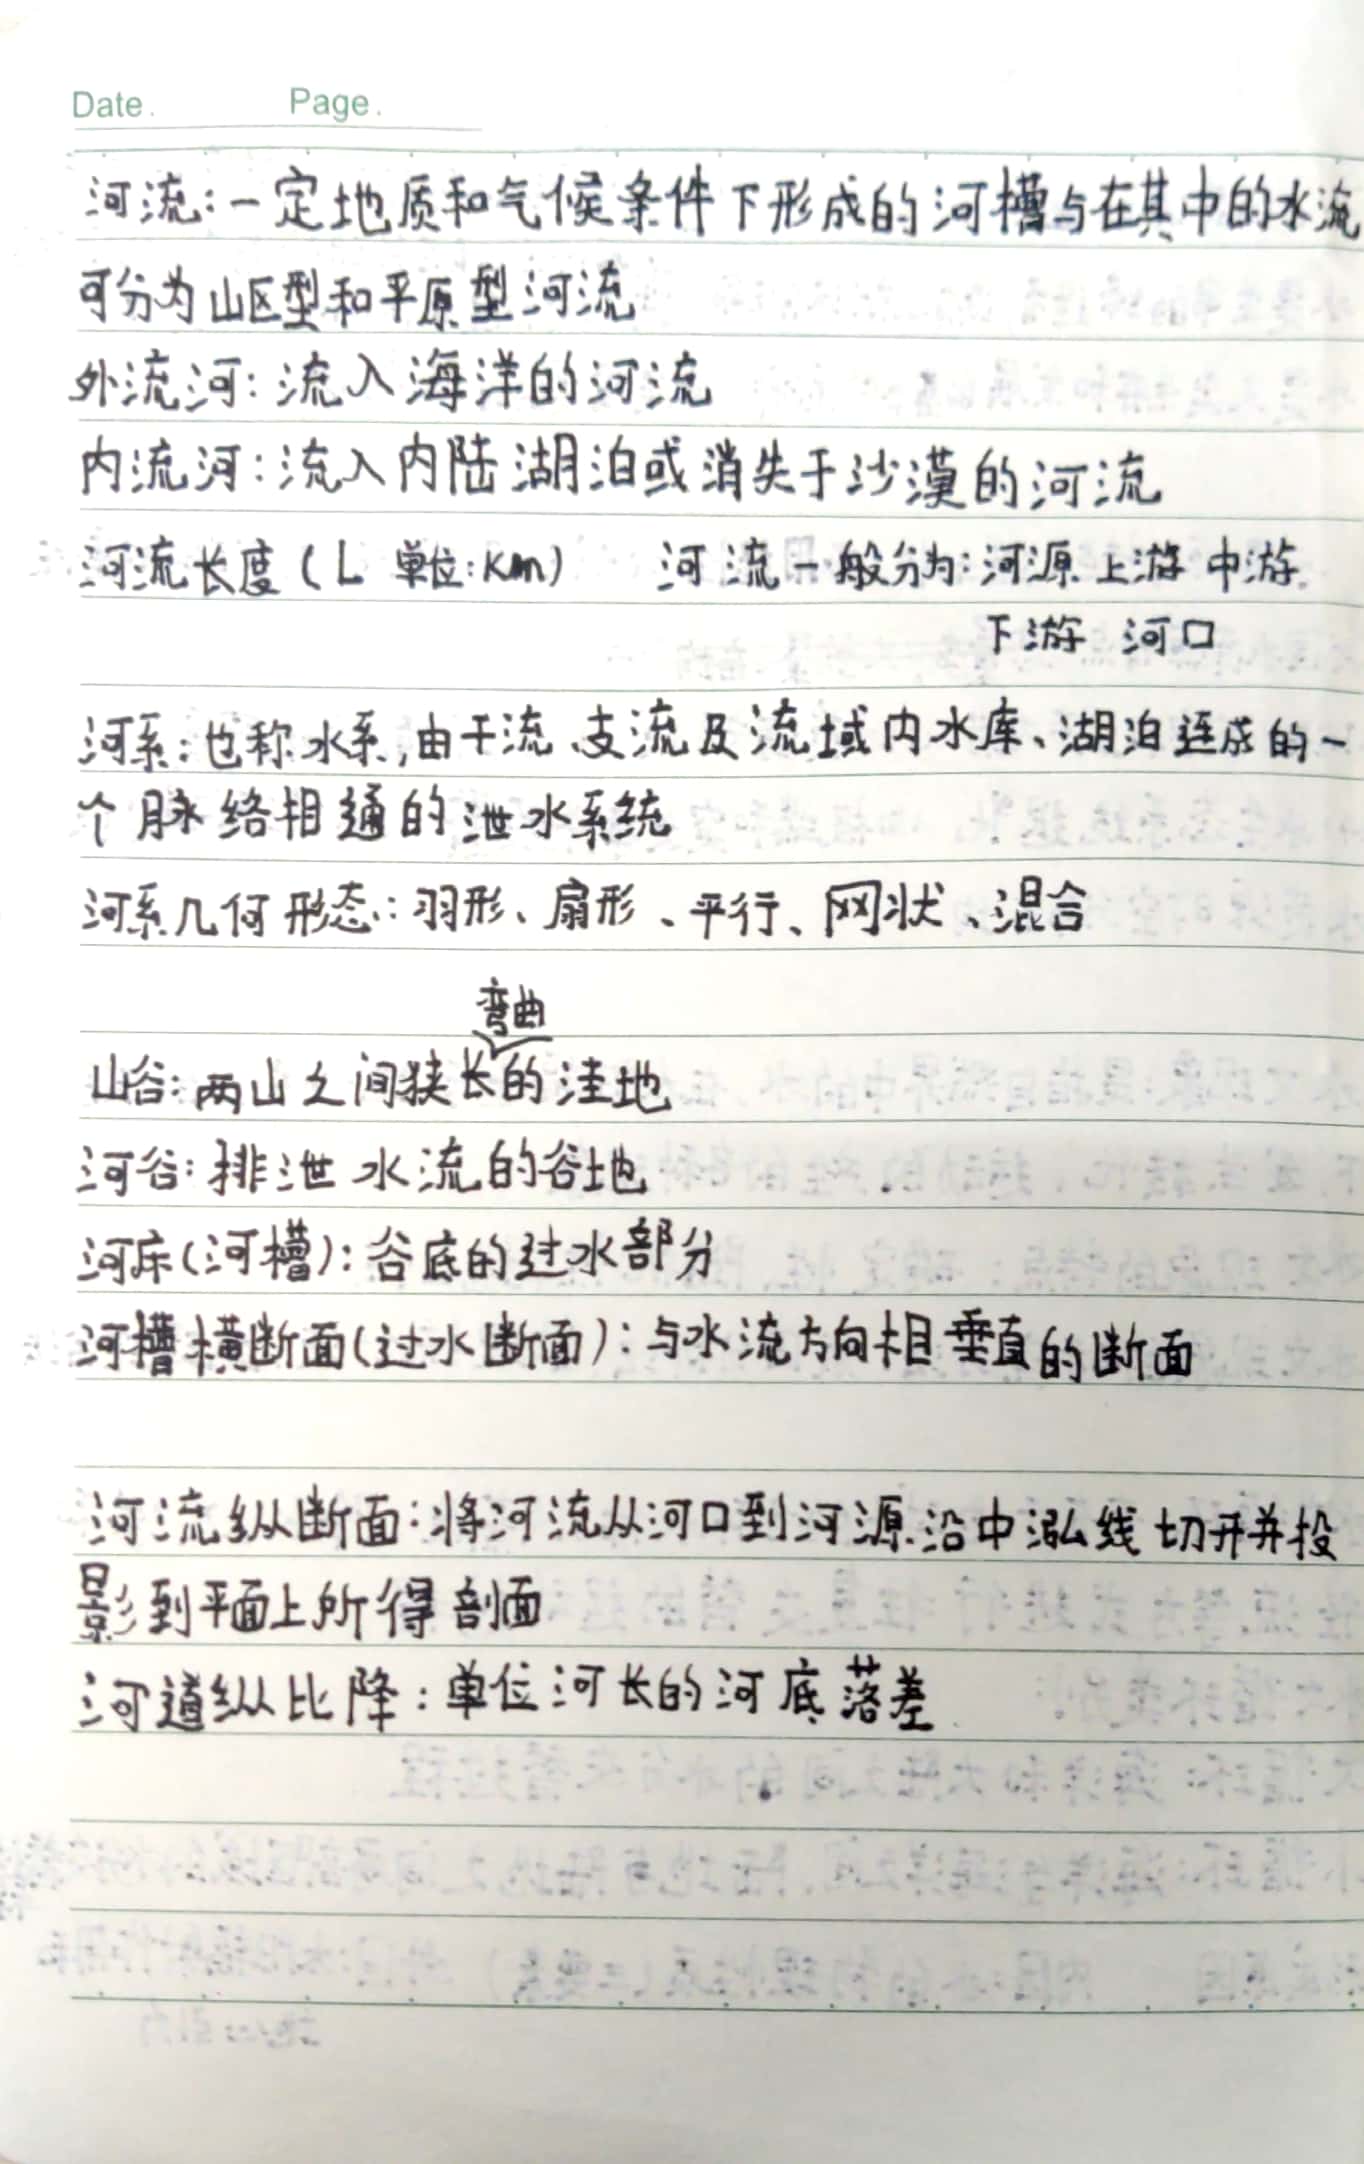 Date. Page.
河流：一定地质和气候条件下形成的河槽与在其中的水流
可分为山区型和平原型河流
外流河：流入海洋的河流
内流河：流入内陆湖泊或消失于沙漠的河流
河流长度（L 单位：Km） 河流一般分为：河源 上游 中游
下游 河口
河系：也称水系，由干流、支流及流域内水库、湖泊连成的一
个脉络相通的泄水系统
河系几何形态：羽形、扇形、平行、网状、混合
弯曲
山谷：两山之间狭长的洼地
河谷：排泄水流的谷地
河床（河槽）：谷底的过水部分
河槽横断面（过水断面）：与水流方向相垂直的断面
河流纵断面：将河流从河口到河源沿中泓线切开并投
影到平面上所得剖面
河道纵比降：单位河长的河底落差